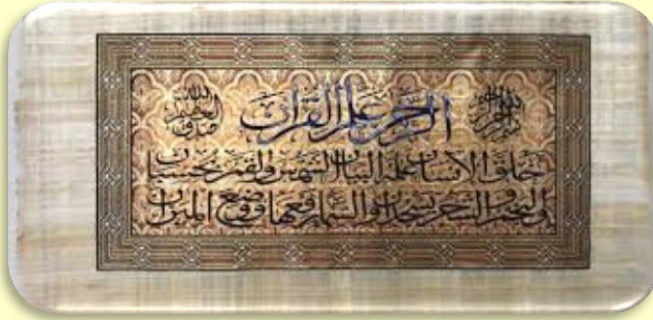 بسم الله الرحمن الرحيم
الرحمن علم القرآن
صدق الله العظيم
خلق الانسان علمه البيان الشمس والقمر بحسبان
والنجم والشجر يسجدان والسماء رفعها ووضع الميزان